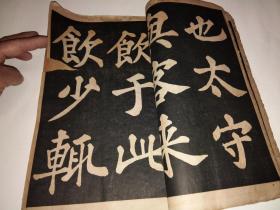 也太守
與客来
飲于此
飲少輒